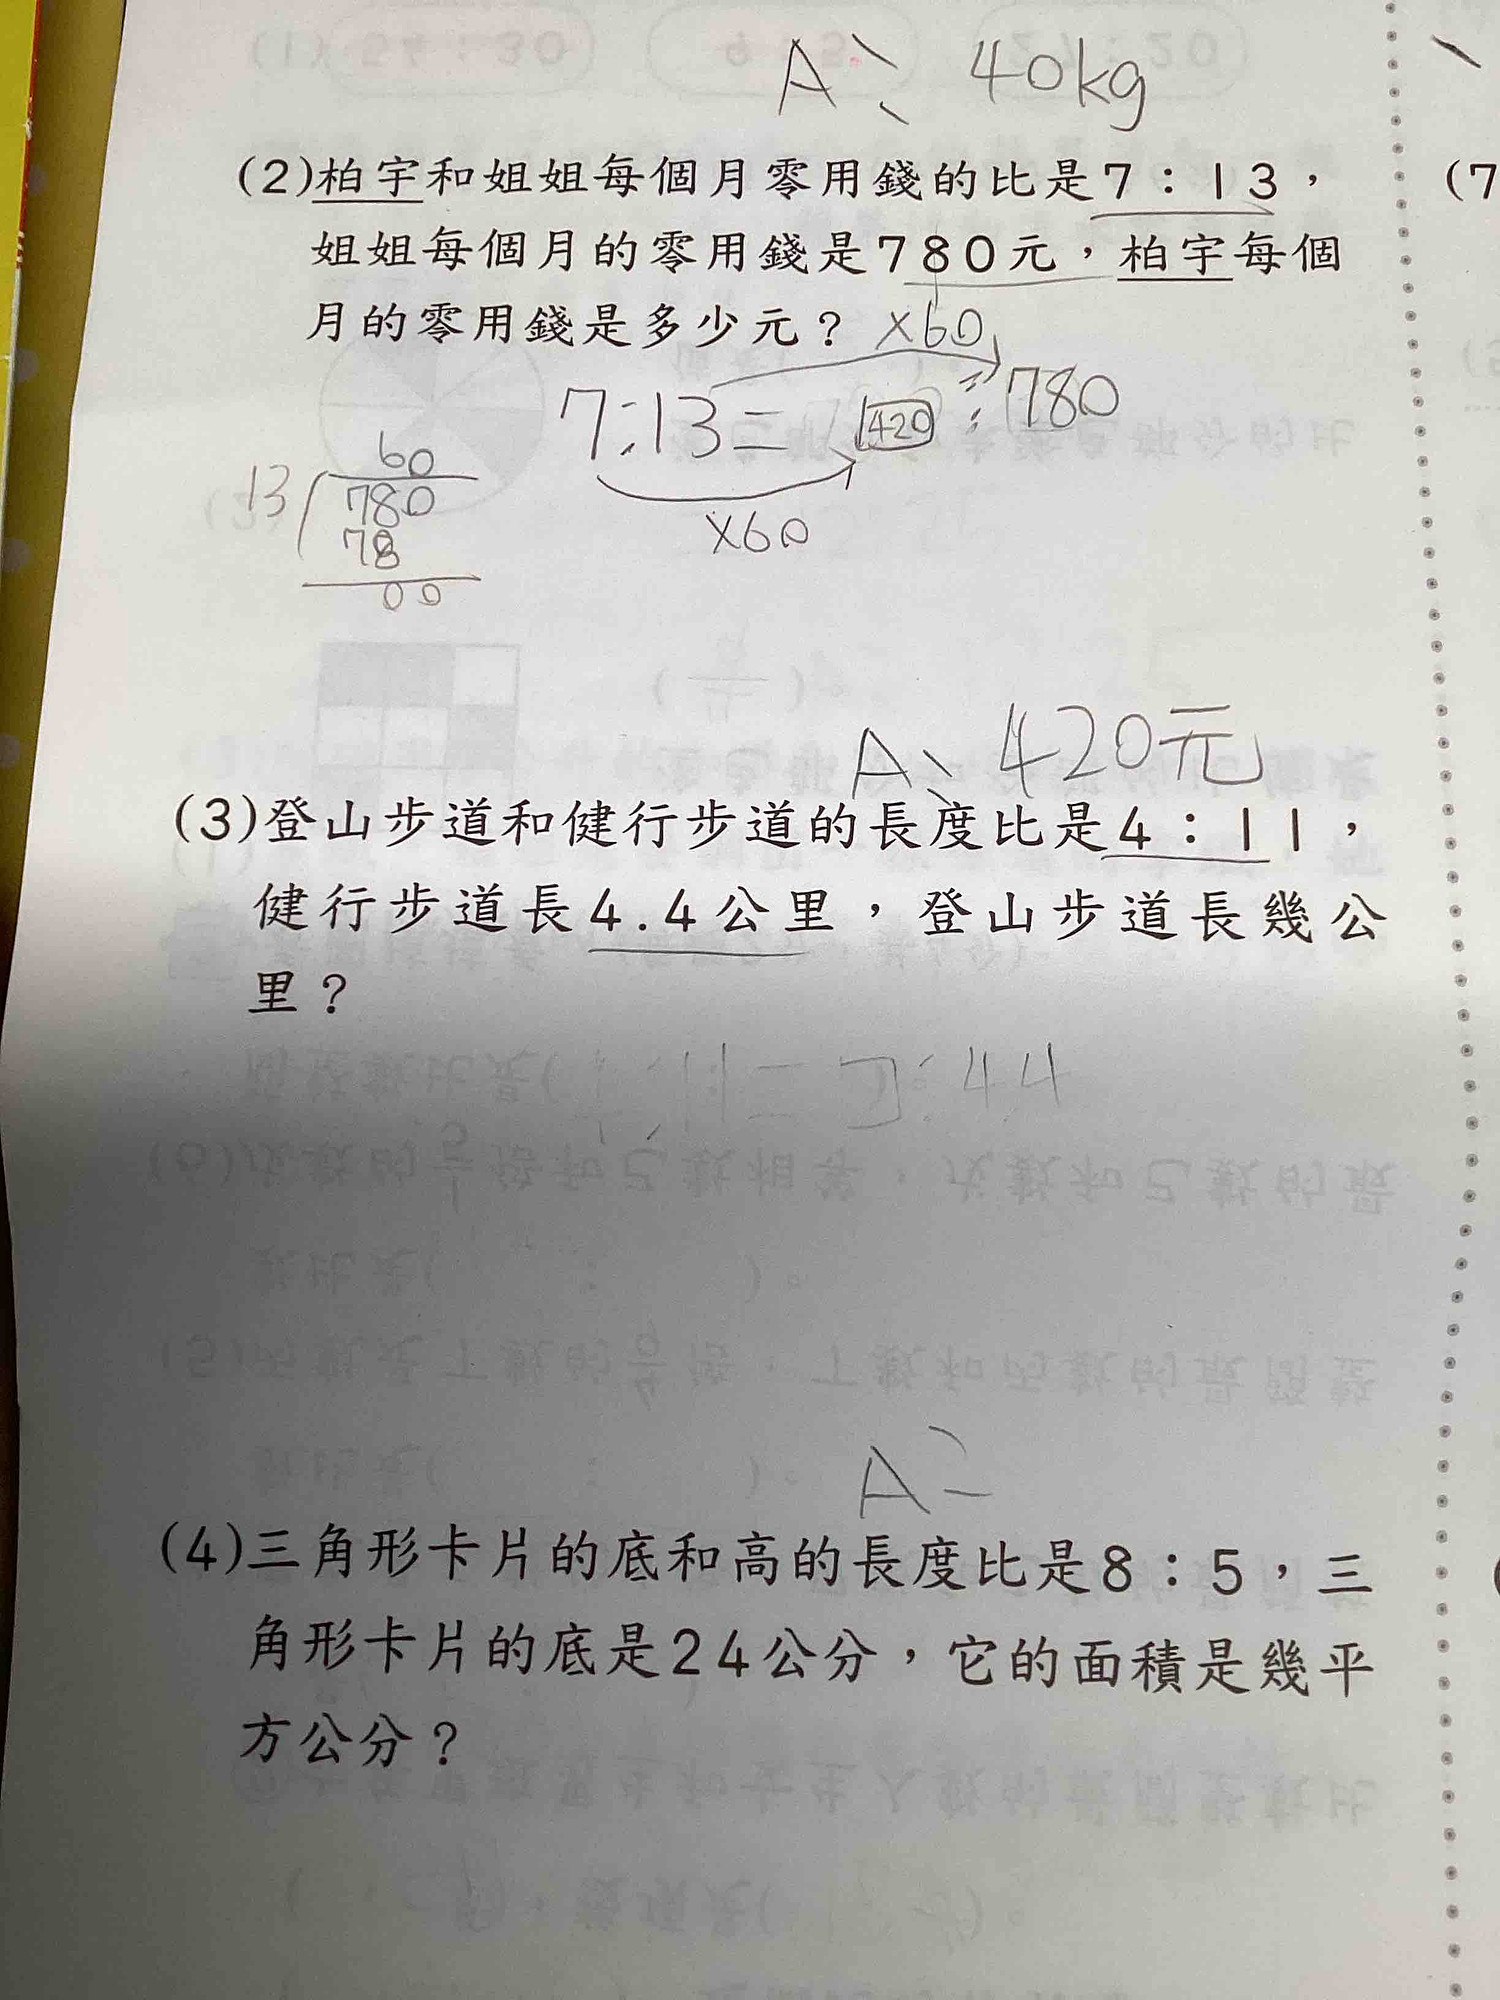 A: 40kg
(2)柏宇和姐姐每個月零用錢的比是7：13，
姐姐每個月的零用錢是780元，柏宇每個
月的零用錢是多少元？
×60
7:13=420:780
×60
60
13
780
78
00
A、420元
(3)登山步道和健行步道的長度比是4：11，
健行步道長4.4公里，登山步道長幾公
里？
A:
(4)三角形卡片的底和高的長度比是8：5，三
角形卡片的底是24公分，它的面積是幾平
方公分？
(7